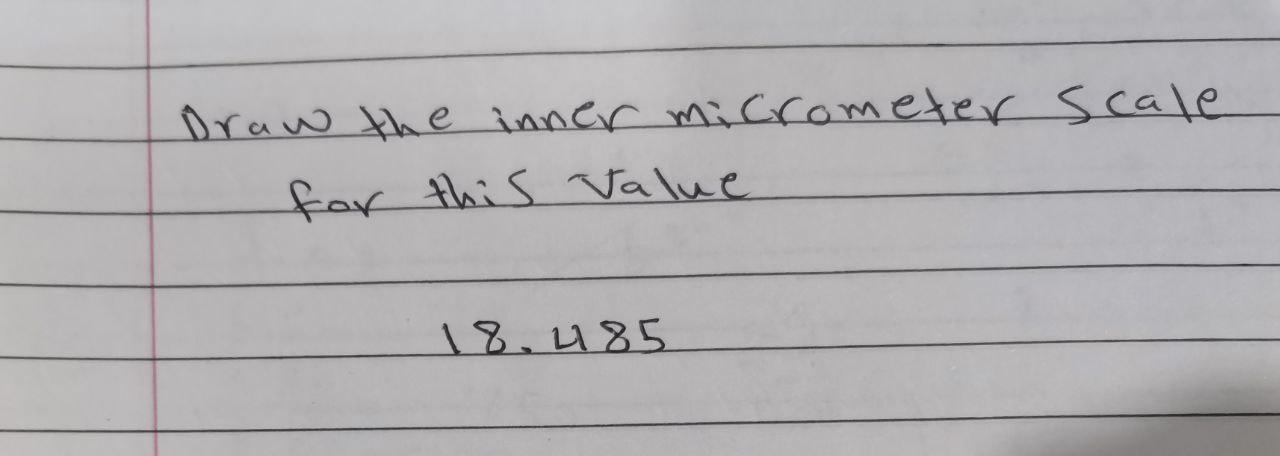 Draw the inner micrometer scale
for this value
18.485